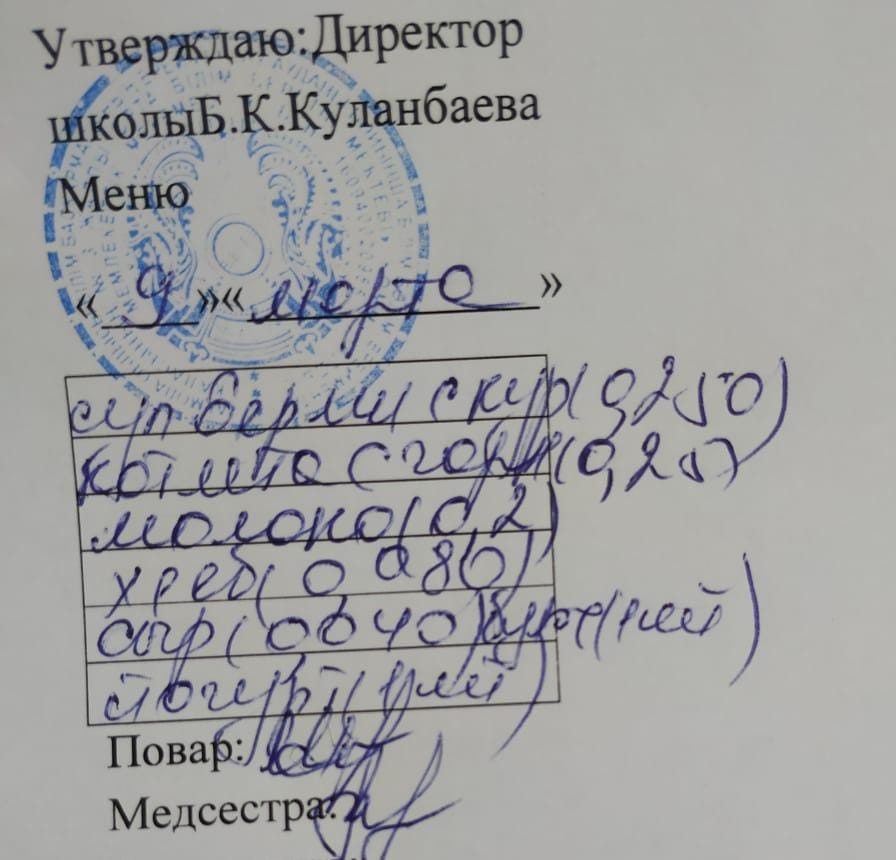 Утверждаю:Директор
школыБ.К.Куланбаева
Меню
«9»«марта»
суп верми с кур(0,250)
котлета с гарн(0,25)
молоко(0,2)
хлеб(0,080)
сыр(0,040) (1шт)
йогурт(1шт)
Повар:
Медсестра: